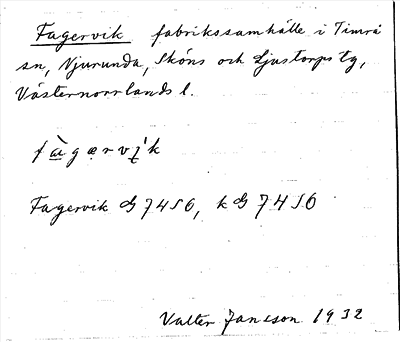 Fagervik fabrikssamhälle i Timrå
sn, Njurunda, Sköns och Ljustorps tg,
Västernorrlands l.
Fagervik G 7456, k G 7456
Valter Jansson 1932